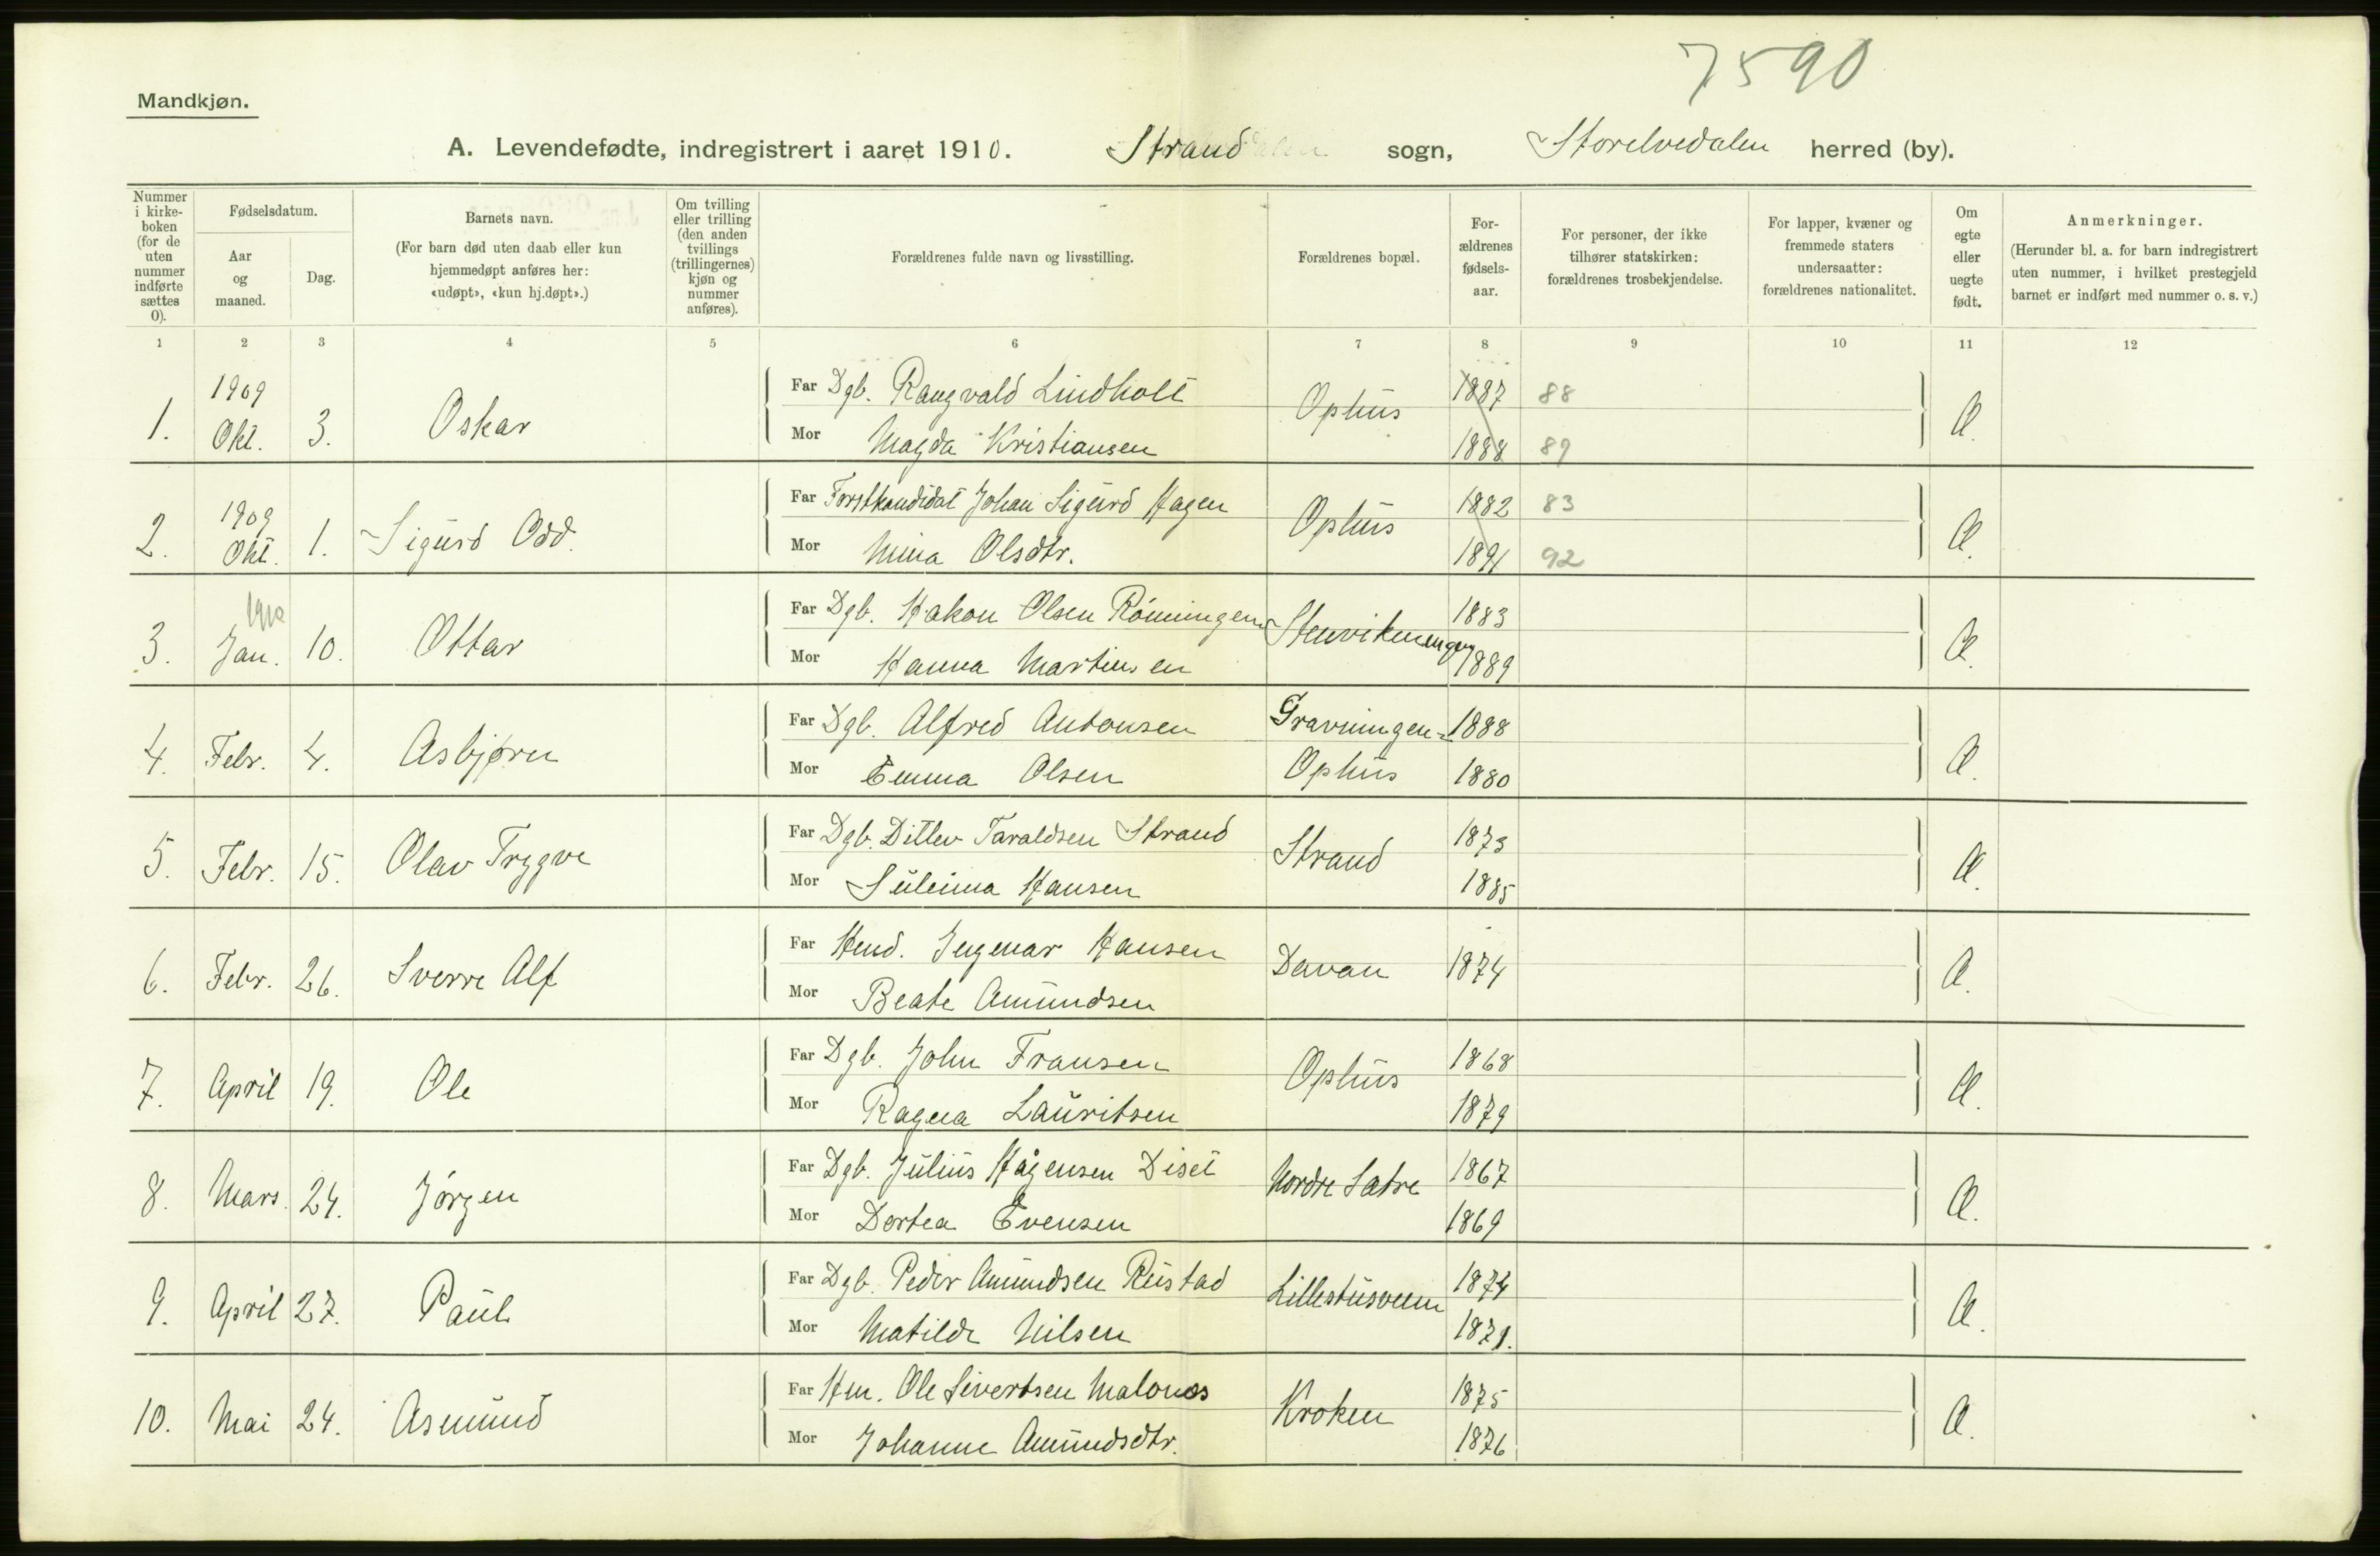 7590
Mandkjøn.
A. Levendefødte, indregistrert i aaret 1910. Strand sogn, Storelvedalen herred (by).
Nummer i kirkeboken (for de uten nummer indførte sættes 0).
Fødselsdatum.
Aar og maaned.
Dag.
Barnets navn.
(For barn død uten daab eller kun hjemmedøpt anføres her: «udøpt», «kun hj.døpt».)
Om tvilling eller trilling (den anden tvillings (trillingernes) kjøn og nummer anføres).
Forældrenes fulde navn og livsstilling.
Forældrenes bopæl.
For-ældrenes fødsels-aar.
For personer, der ikke tilhører statskirken: forældrenes trosbekjendelse.
For lapper, kvæner og fremmede staters undersaatter: forældrenes nationalitet.
Om egte eller uegte født.
Anmerkninger.
(Herunder bl. a. for barn indregistrert uten nummer, i hvilket prestegjeld barnet er indført med nummer o. s. v.)
1 2 3 4 5 6 7 8 9 10 11 12
1. 1909 Okt. 3. Oskar Far Dgb. Rangvald Lindholt Ophus 1887 88 Æ.
Mor Magda Kristiansen 1888 89
2. 1909 Okt. 1. Sigurd Odd. Far Forstkandidat Johan Sigurd Hagen Ophus 1882 83 Æ.
Mor Mina Olsdtr. 1891 92
3. 1910 Jan. 10. Ottar Far Dgb. Hakon Olsen Rönningen 1883 Æ.
Mor Hanna Martinsen 1889
4. Febr. 4. Asbjørn Far Dgb. Alfred Antonsen Gravningen- 1888 Æ.
Mor Emma Olsen Ophus 1880
5. Febr. 15. Olav Trygve Far Dgb. Ditlev Taraldsen Strand Strand 1873 Æ.
Mor Hansen 1885
6. Febr. 26. Sverre Alf Far Ingemar Hansen Davan 1874 Æ.
Mor Beate Amundsen
7. April 19. Ole Far Dgb. John Fransen Ophus 1868 Æ.
Mor Ragna Lauritsen 1879
8. Mars. 24. Jörgen Far Dgb. Julius Hågensen Diset Nordre Sætre 1867 Æ.
Mor Dortea Evensen 1869
9. April 27. Paul Far Dgb. Peder Amundsen Rustad 1874 Æ.
Mor Matilde Nilsen
10. Mai 24. Asmund Far Ole Sivertsen Kroken 1875 Æ.
Mor Johanne Amundsdtr. 1876